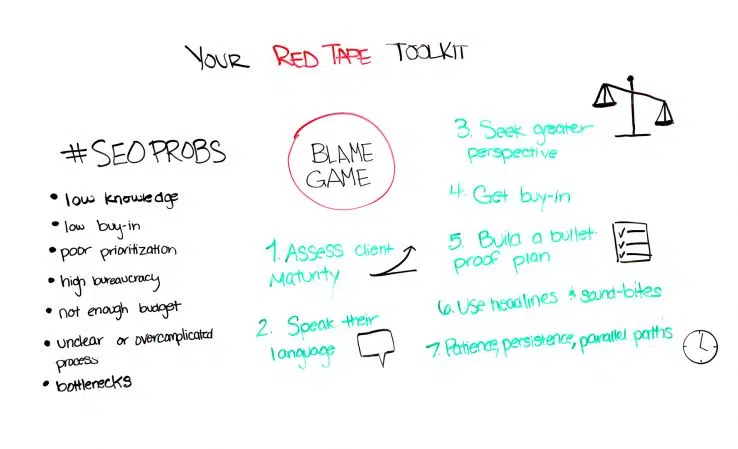 YOUR RED TAPE TOOLKIT
#SEOPROBS
• low knowledge
• low buy-in
• poor prioritization
• high bureaucracy
• not enough budget
• unclear or overcomplicated
process
• bottlenecks
BLAME
GAME
1. Assess client
Maturity
2. Speak their
language
3. Seek greater
perspective
4. Get buy-in
5. Build a bullet-
proof plan
6. Use headlines & sound-bites
7. Patience, persistence, parallel paths